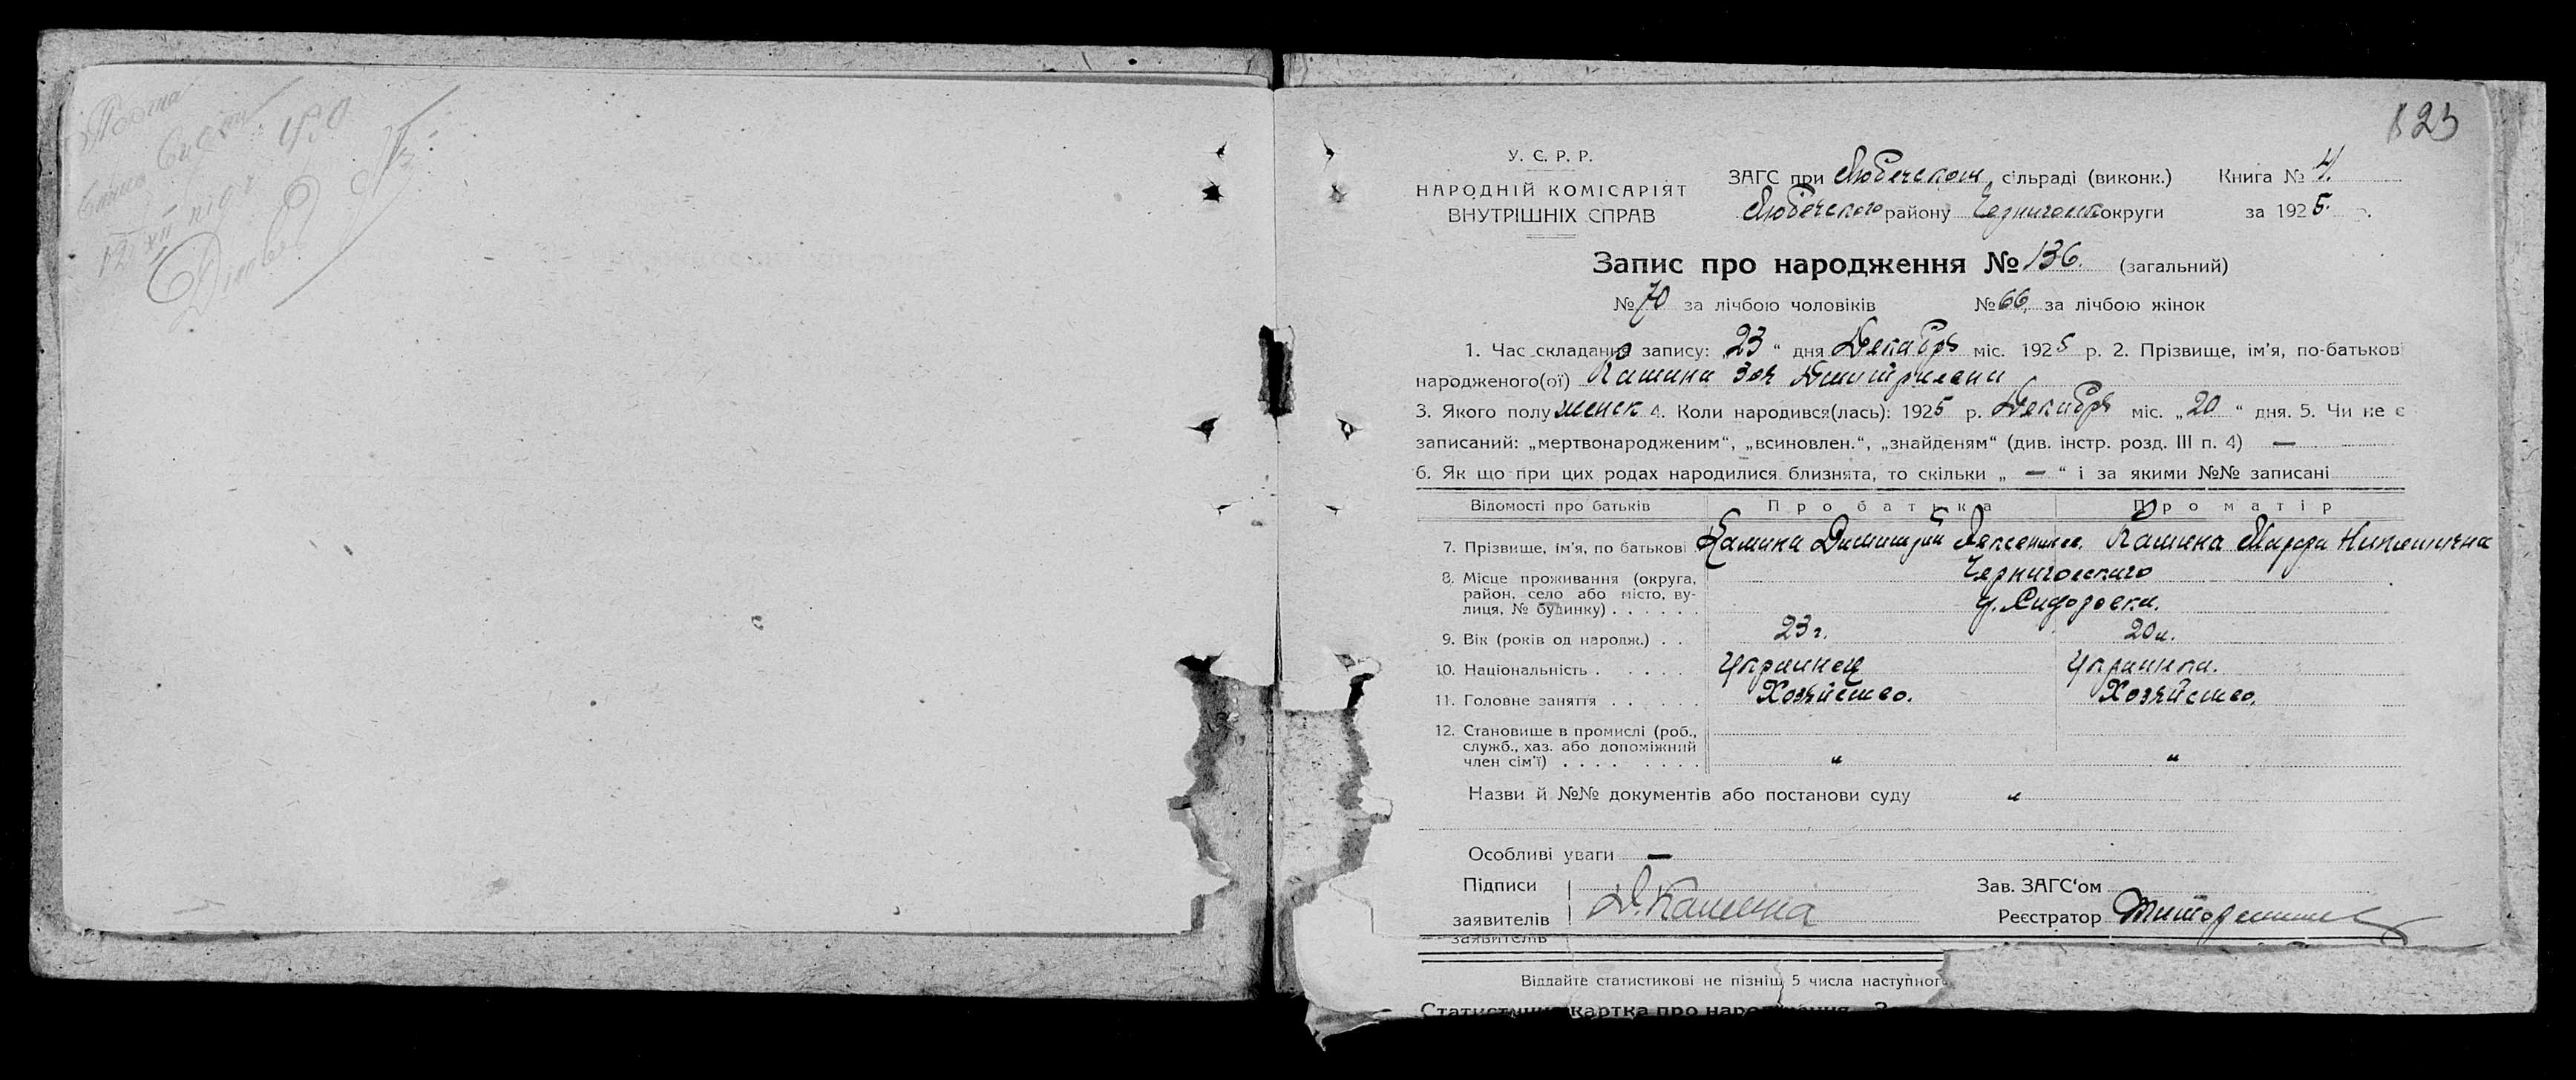 123
У. С. Р. Р.
НАРОДНІЙ КОМІСАРІЯТ
ВНУТРІШНІХ СПРАВ
ЗАГС при Любечском сільраді (виконк.) Книга № 4.
Любечского району Черниговск округи за 1925. р.
Запис про народження № 136. (загальний)
№ 70 за лічбою чоловіків № 66, за лічбою жінок
1. Час складання запису: „23“ дня Декабря міс. 1925 р. 2. Прізвище, ім'я, по-батькові
народженого(ої) Кашина Зоя Дмитриевна
3. Якого полу женск 4. Коли народився(лась): 1925 р. Декабря міс. „20“ дня. 5. Чи не є
записаний: „мертвонародженим“, „всиновлен.“, „знайденям“ (див. інстр. розд. III п. 4) —
6. Як що при цих родах народилися близнята, то скільки „ — “ і за якими №№ записані
Відомості про батьків Про батька Про матір
7. Прізвище, ім'я, по батькові Кашина Димитрий Кашина Марфа
8. Місце проживання (округа, район, село або місто, вулиця, № будинку) Черниговского
9. Вік (років од народж.) 23 г. 20 л.
10. Національність Украинец Украинка.
11. Головне заняття Хозяйство. Хозяйство.
12. Становище в промислі (роб.,
служб., хаз. або допоміжний
член сім'ї) " "
Назви й №№ документів або постанови суду "
Особливі уваги —
Підписи Зав. ЗАГС'ом
заявителів Д. Кашина Реєстратор
заявителів
Віддайте статистикові не пізніш 5 числа наступного
Статистична картка про народження